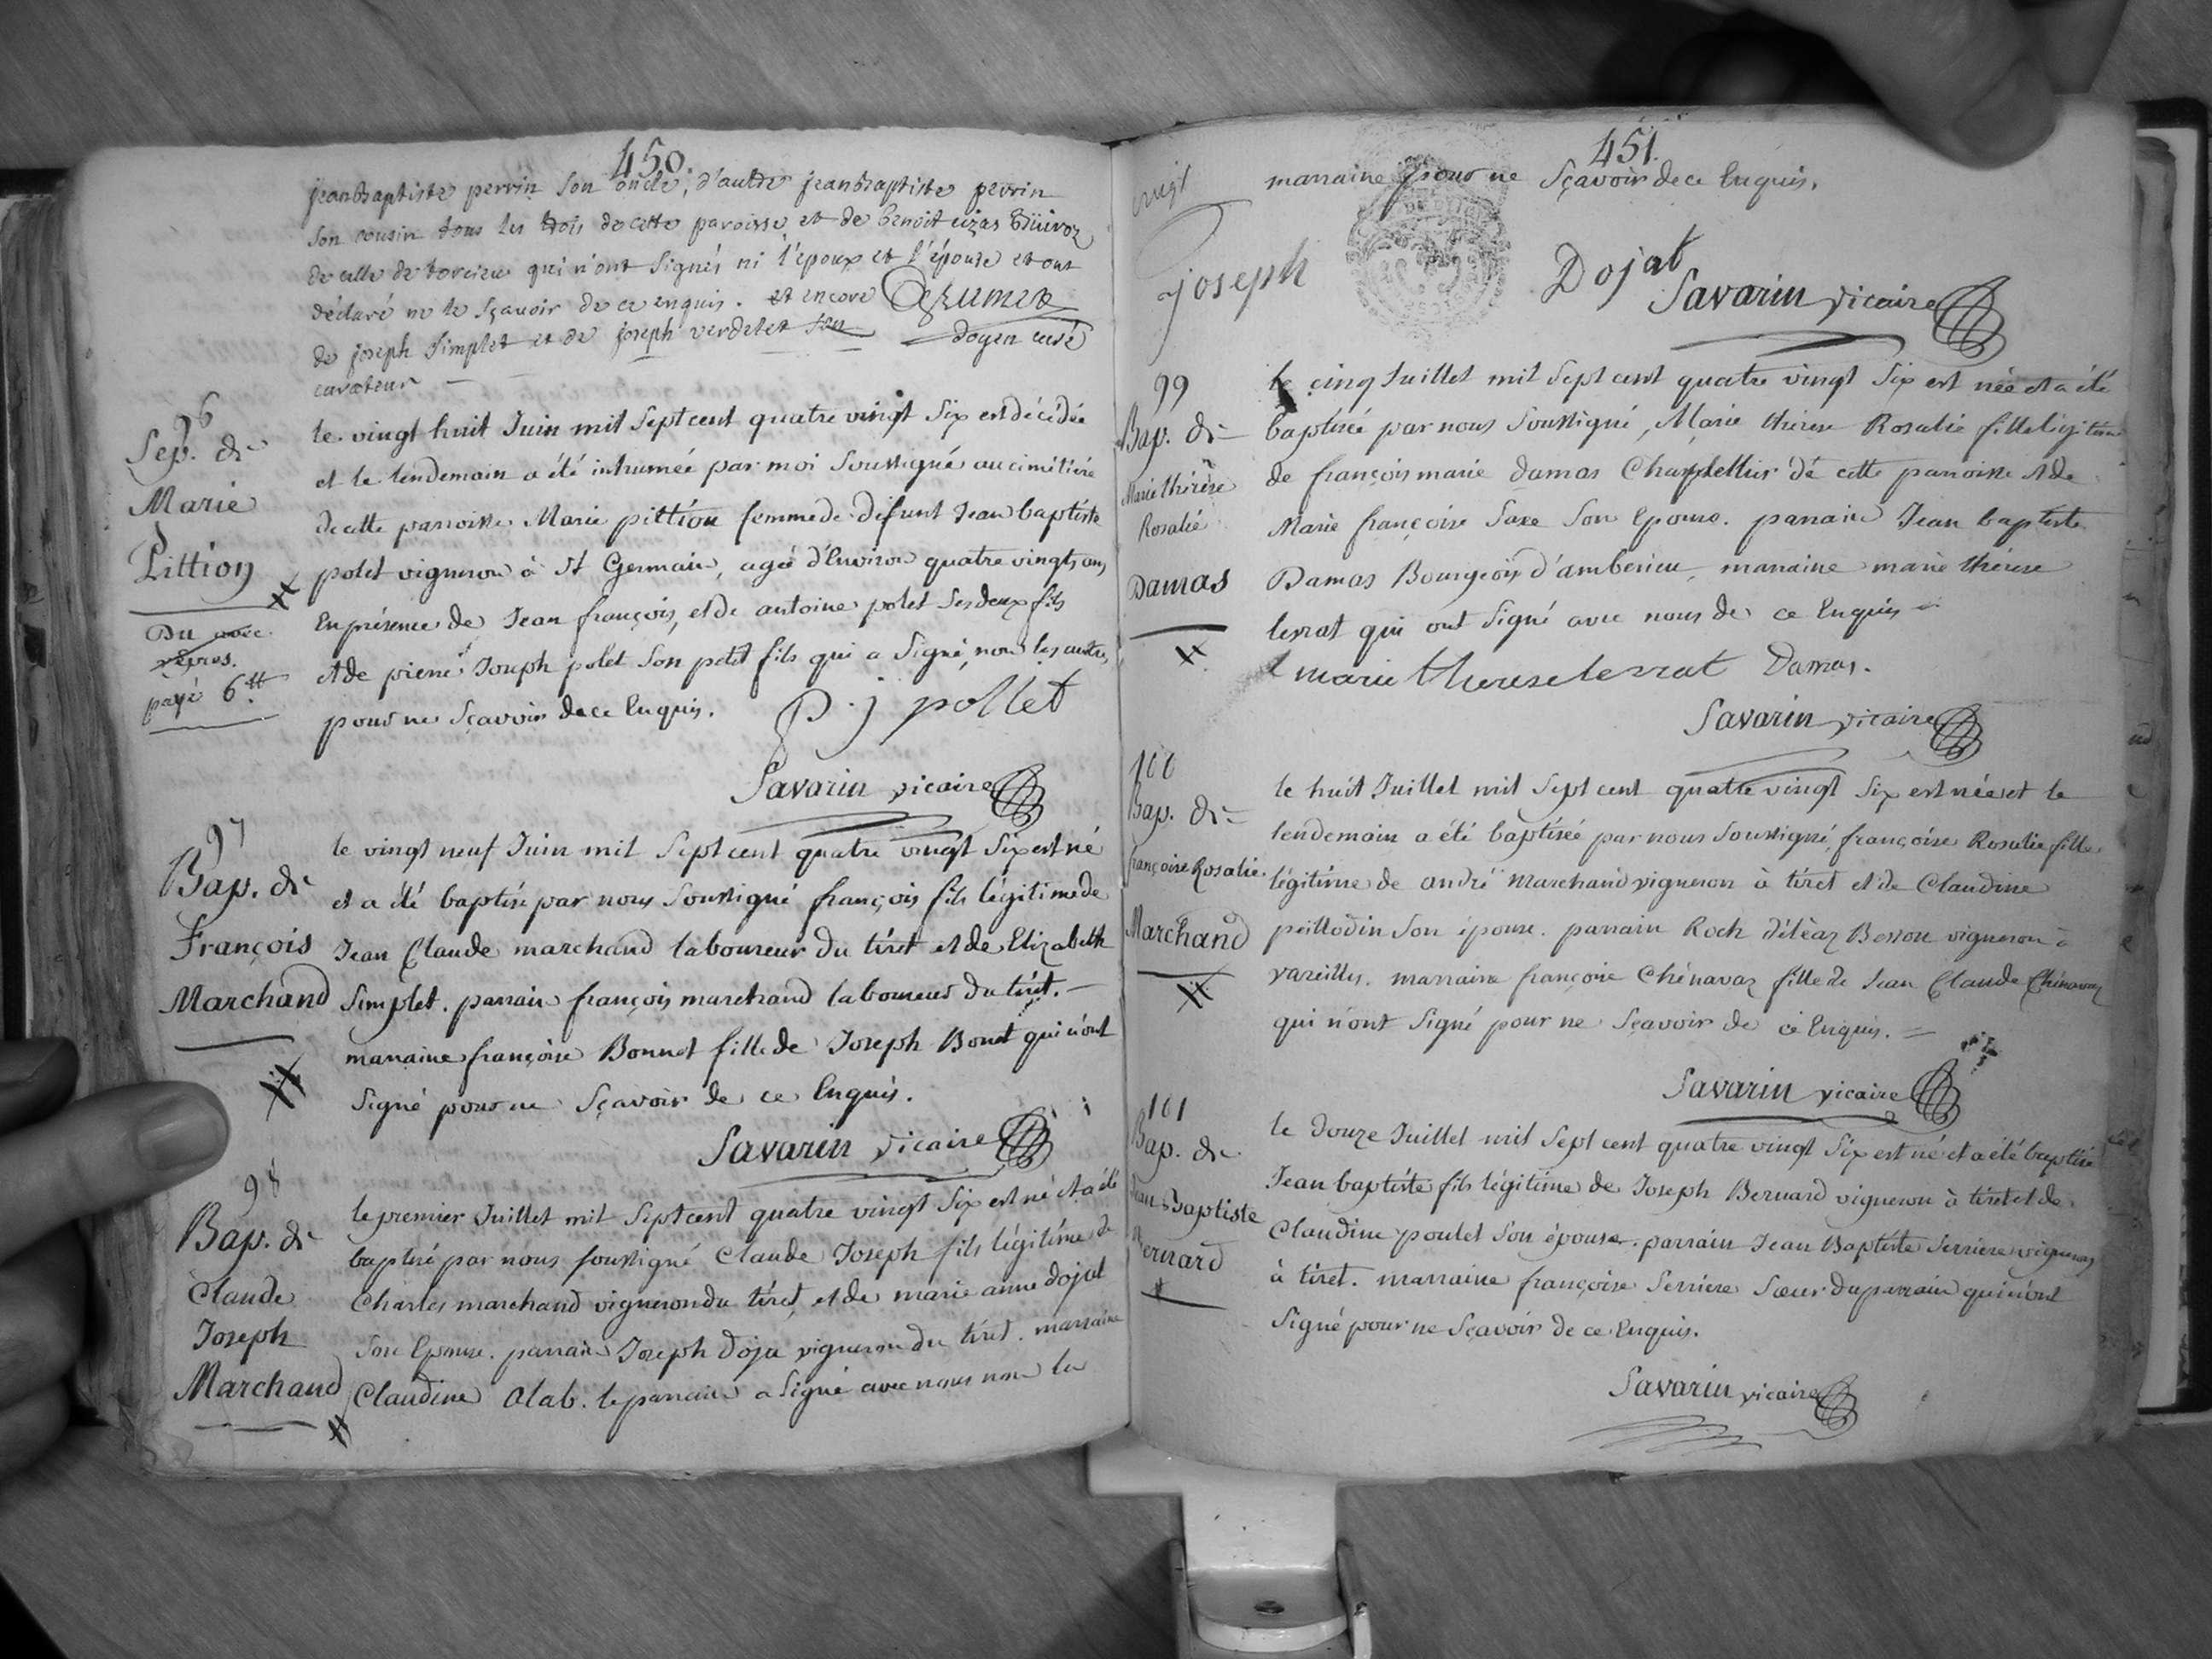 450.
jeanbaptiste perrin son oncle, d'autre jeanbaptiste perrin
son cousin tous les trois de cette paroisse et de benoit
de celle de torcieu qui n'ont signés ni l'époux et l'épouse et ont
déclaré ne le sçavoir de ce enquis. et encore
de joseph simplet et de joseph verdelet son doyen curé
curateur
96
Sep. de
Marie
Pittion
Du avec
vepres.
payé 6tt
le vingt huit Juin mil sept cent quatre vingt six est décédée
et le lendemain a été inhumée par moi soussigné au cimétière
de cette parroisse Marie pittion femme de défunt Jean baptiste
polet vigneron à St Germain, agée d'environ quatre vingts ans
En présence de Jean françois, et de antoine polet ses deux fils
et de pierre Joseph polet son petit fils qui a signé, non les autres
pour ne sçavoir de ce Enquis. P. j pollet
Savarin vicaire
97
Bap. de
François
Marchand
le vingt neuf Juin mil sept cent quatre vingt six est né
et a été baptisé par nous soussigné françois fils légitime de
Jean Claude marchand laboureur du tiret et de Elizabeth
Simplet. parrain françois marchand laboureur du tiret.
marraine françoise Bonnet fille de Joseph Bonet qui n'ont
signé pour ne sçavoir de ce Enquis.
Savarin vicaire
98
Bap. de
Claude
Joseph
Marchand
le premier Juillet mil sept cent quatre vingt six est né et a été
baptisé par nous soussigné Claude Joseph fils légitime de
Charles marchand vigneron du tiret, et de marie anne dojat
son Epouse. parrain Joseph doja vigneron du tiret. marraine
Claudine Olab. le parrain a signé avec nous non la
451.
marraine pour ne sçavoir de ce Enquis.
joseph Dojat
Savarin vicaire
99
Bap. de
Marie thérèse
Rosalie
Damas
le cinq Juillet mil sept cent quatre vingt six est née et a été
baptisée par nous soussigné, Marie thérese Rosalie fille légitime
de françois marie damas de cette parroisse et de
Marie françoise Saxe son Epouse. parrain Jean baptiste
Damas Bourgeois d'amberieu, marraine marie thérese
lesrat qui ont signé avec nous de ce Enquis
marie therese lesrat Damas.
Savarin vicaire
100
Bap. de
françoise Rosalie
Marchand
le huit Juillet mil sept cent quatre vingt six est née et le
lendemain a été baptisée par nous soussigné, françoise Rosalie fille
légitime de andré Marchand vigneron à tiret et de Claudine
peillodin son épouse. parrain Roch déléaz Besson vigneron à
vareilles. marraine françoise Chénavaz fille de Jean Claude Chénavaz
qui n'ont signé pour ne sçavoir de ce Enquis.
Savarin vicaire
101
Bap. de
Jean Baptiste
Bernard
le douze Juillet mil sept cent quatre vingt six est né et a été baptisé
Jean baptiste fils légitime de Joseph Bernard vigneron à tiret et de
Claudine poulet son épouse. parrain Jean Baptiste Serriere vigneron
à tiret. marraine françoise Serriere sœur du parrain qui n'ont
signé pour ne sçavoir de ce Enquis.
Savarin vicaire